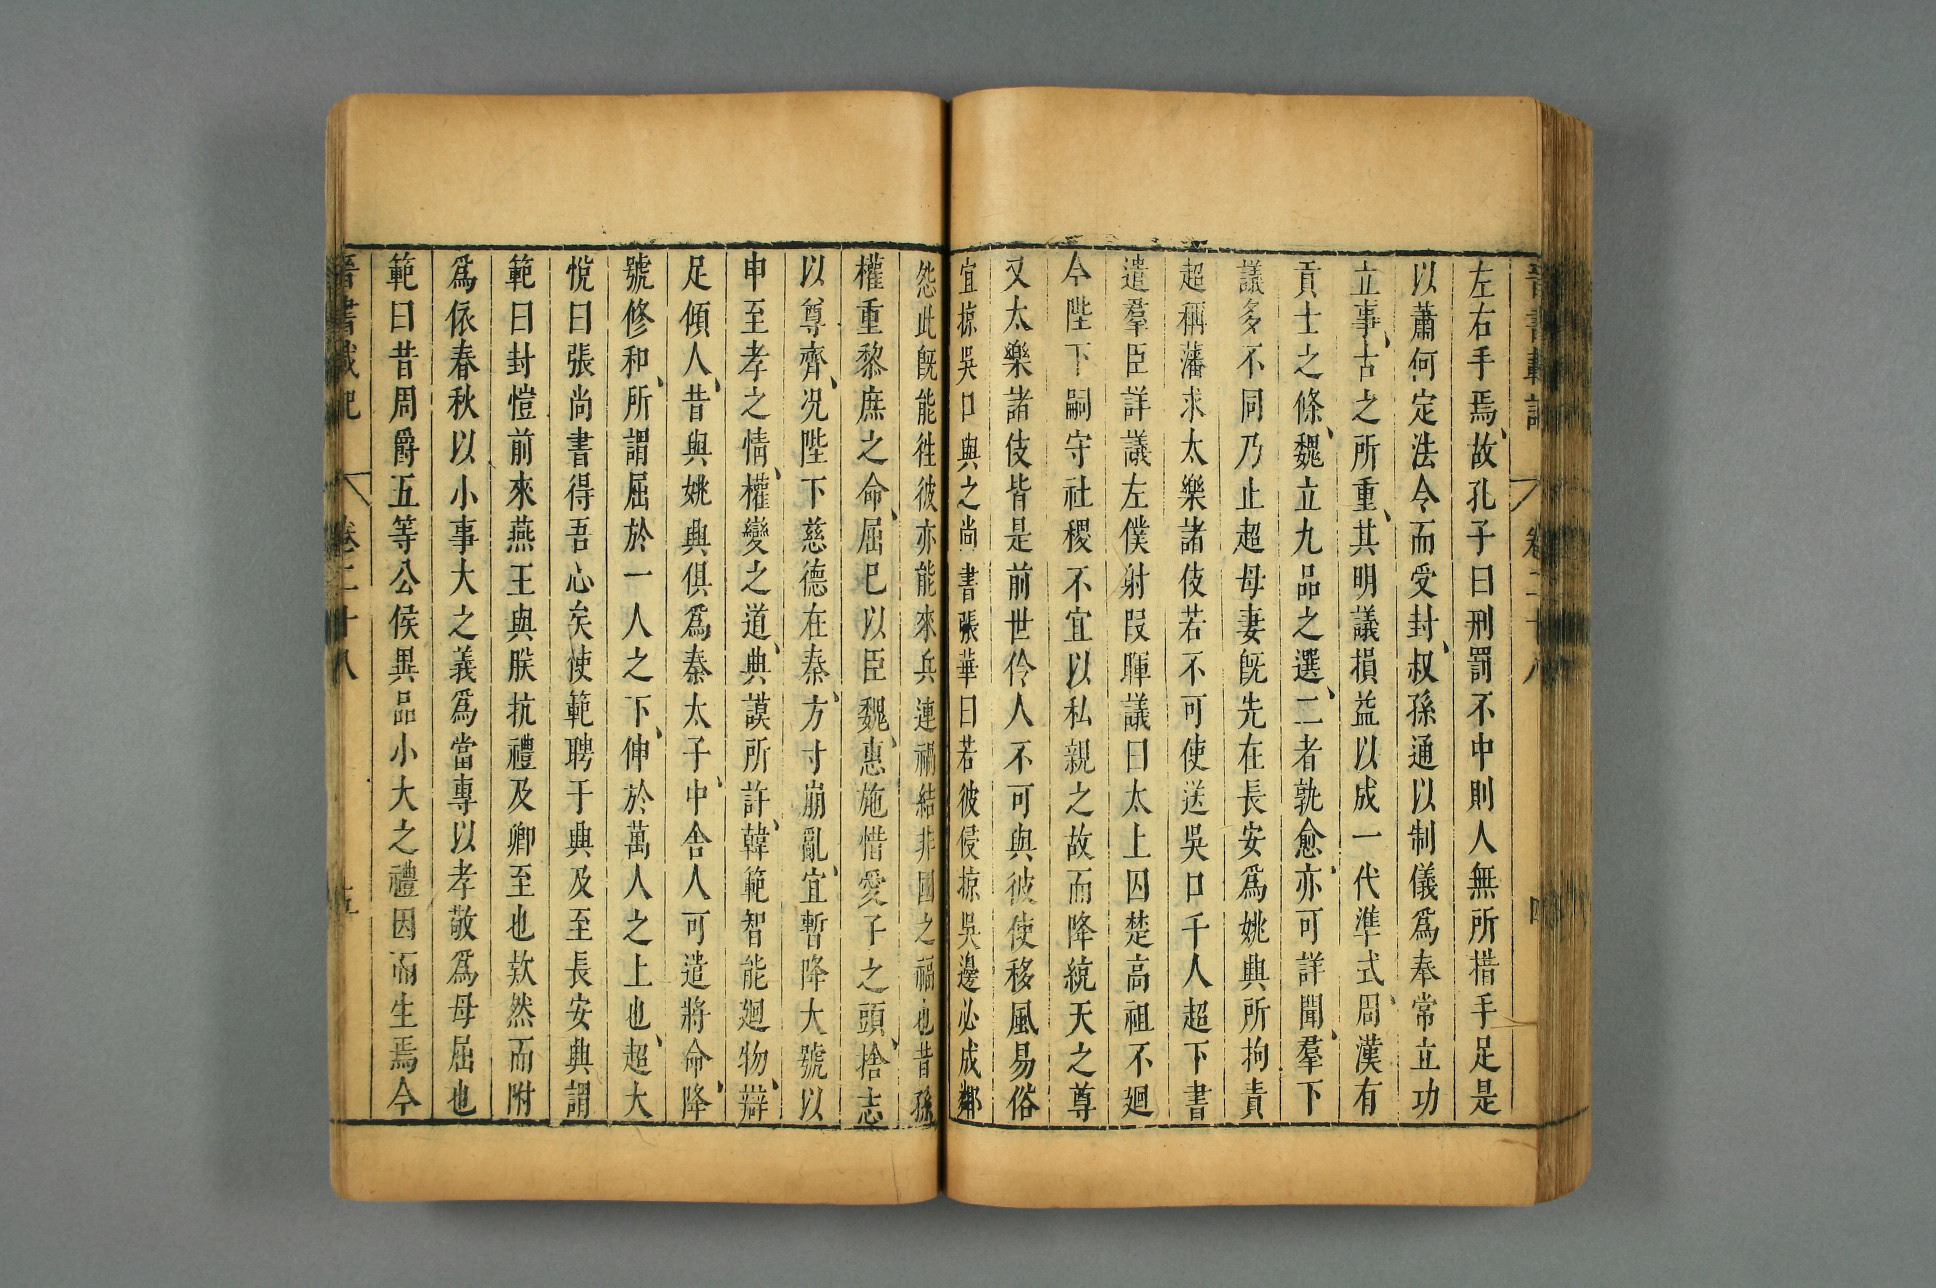 晉書載記 卷二十八 四
左右手焉故孔子曰刑罰不中則人無所措手足是
以蕭何定法令而受封叔孫通以制儀爲奉常立功
立事古之所重其明議損益以成一代準式周漢有
貢士之條魏立九品之選二者孰愈亦可詳聞羣下
議多不同乃止超母妻旣先在長安爲姚興所拘責
超稱藩求太樂諸伎若不可使送吳口千人超下書
遣羣臣詳議左僕射段暉議曰太上囚楚高祖不廻
今陛下嗣守社稷不宜以私親之故而降統天之尊
又太樂諸伎皆是前世伶人不可與彼使移風易俗
宜掠吳口與之尚書張華曰若彼侵掠吳邊必成鄰
怨此旣能徃彼亦能來兵連禍結非國之福也昔孫
權重黎庶之命屈已以臣魏惠施惜愛子之頭捨志
以尊齊况陛下慈德在秦方寸崩亂宜暫降大號以
申至孝之情權變之道典謨所許韓範智能廻物辯
足傾人昔與姚興俱爲秦太子中舍人可遣將命降
號修和所謂屈於一人之下伸於萬人之上也超大
悅曰張尚書得吾心矣使範聘于興及至長安興謂
範曰封愷前來燕王與朕抗禮及卿至也欻然而附
爲依春秋以小事大之義爲當專以孝敬爲母屈也
範曰昔周爵五等公侯異品小大之禮因而生焉今
晉書載記 卷二十八 五